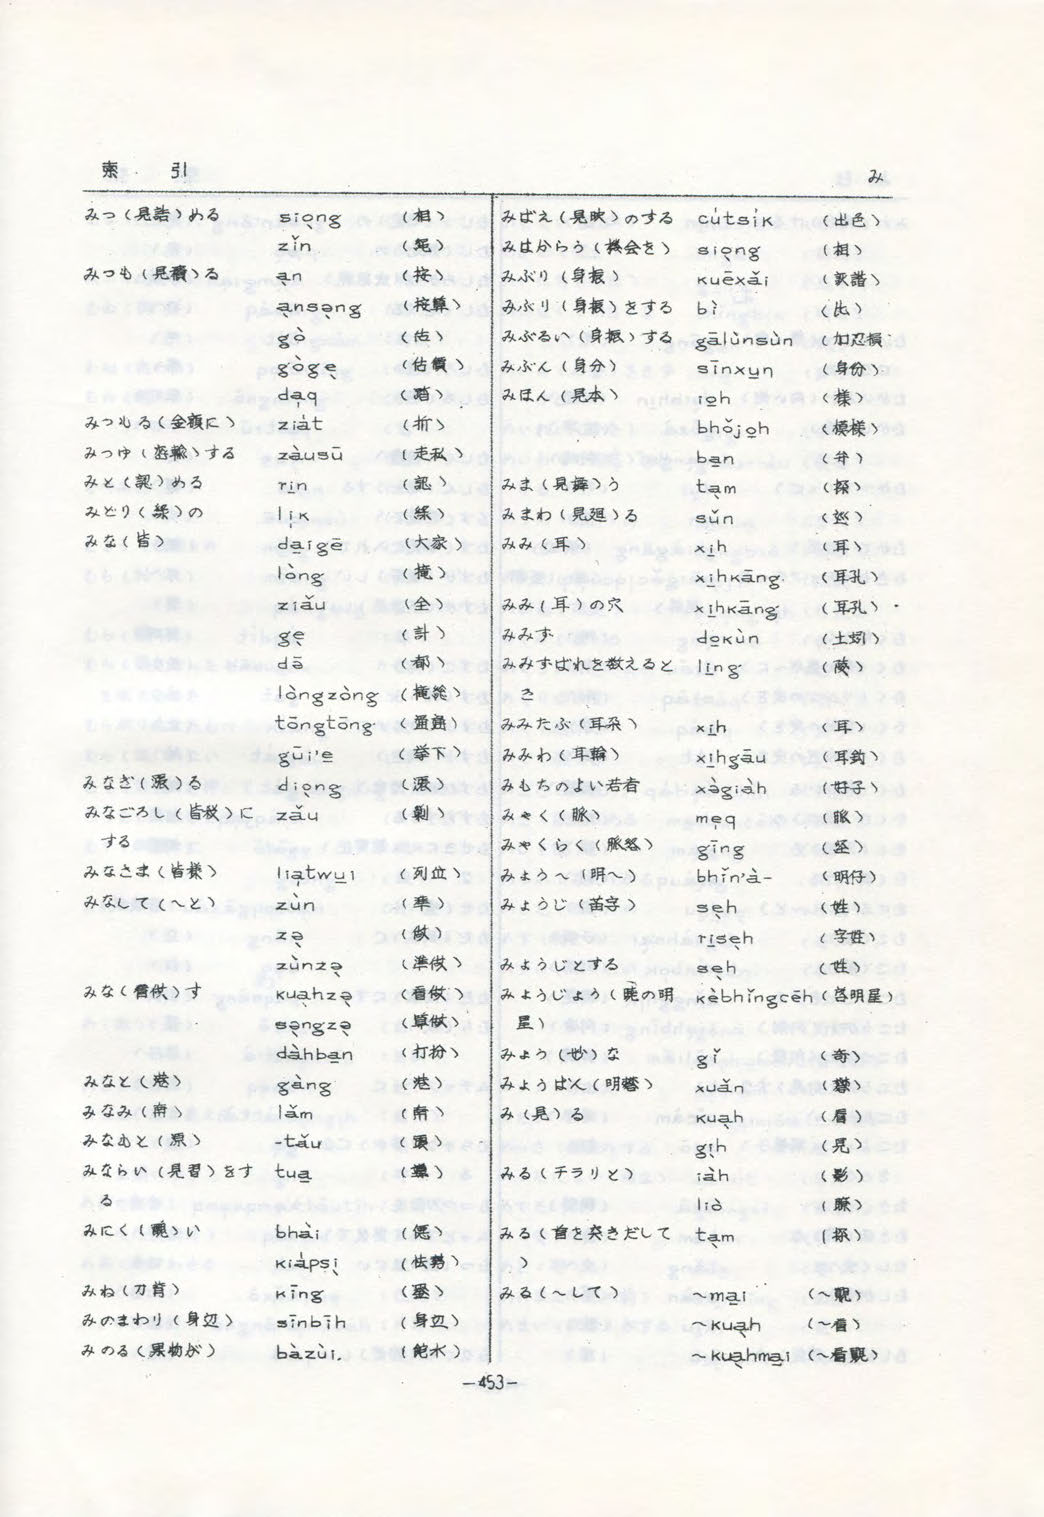 索 引
み
みつ(見詰)める siọng (相)
zǐn
みつも(見積)る ạn (按)
ạnsəng
gò (估)
gògẹ (估價)
dạq (踏)
みつもる(金額に) ziȧt (折)
みつゆ(密輸)する zàusū (走私)
みと(認)める ri̱n (認)
みどり(緑)の lịk (緑)
みな(皆) da̱igē (大家)
lòng (攏)
ziǎu (全)
gẹ (計)
dā (都)
lòngzòng (攏総)
tōngtōng (通通)
gūi'e̱
みなぎ(漲)る diọng (漲)
みなごろし(皆殺)に zǎu (剿)
する
みなさま(皆様) liạtwu̱i (列位)
みなして(~と) zùn (準)
zə̣ (做)
zùnzə̣ (準做)
みな(看做)す kuạhzə̣ (看做)
sə̣ngzə̣ (算做)
dàhba̱n (打扮)
みなと(港) gàng (港)
みなみ(南) lǎm (南)
みなもと(源) -tǎu (頭)
みならい(見習)をす tua̱
る
みにく(醜)い bhài
kiȧpsị (怯勢)
みね(刀背) kīng
みのまわり(身辺) sīnbīh (身辺)
みのる(果物が) bàzùi (飽水)
みばえ(見映)のする cu̍tsi̍k (出色)
みはからう(機会を) siọng (相)
みぶり(身振) kuēxǎi (詼諧)
みぶり(身振)をする bì (比)
みぶるい(身振)する gālùnsùn (加忍損)
みぶん(身分) sīnxu̱n (身份)
みほん(見本) io̱h (様)
bhǒjo̱h (模様)
ba̱n
みま(見舞)う tạm (探)
みまわ(見廻)る sǔn (巡)
みみ(耳) xi̱h (耳)
xi̱hkāng (耳孔)
みみ(耳)の穴 xi̱hkāng (耳孔)
みみず do̱kùn (土蚓)
みみずばれを数えると lǐng
き
みみたぶ(耳朶) xi̱h (耳)
みみわ(耳輪) xi̱hgāu (耳鈎)
みもちのよい若者 xàgiàh (好子)
みゃく(脈) mẹq (脈)
みゃくらく(脈絡) gīng (経)
みょう~(明~) bhǐn'à- (明仔)
みょうじ(苗字) sẹh (姓)
ri̱sẹh (字姓)
みょうじとする sẹh (姓)
みょうじょう(暁の明 kèbhǐngcēh (啓明星)
星)
みょう(妙)な gǐ (奇)
みょうばん(明礬) xuǎn (礬)
み(見)る kuạh (看)
gịh (見)
みる(チラリと) iàh (影)
liò (瞭)
みる(首を突きだして tạm (探)
)
みる(~して) ~ma̱i (~覗)
~kuạh (~看)
~kuạhma̱i (~看覗)
—453—